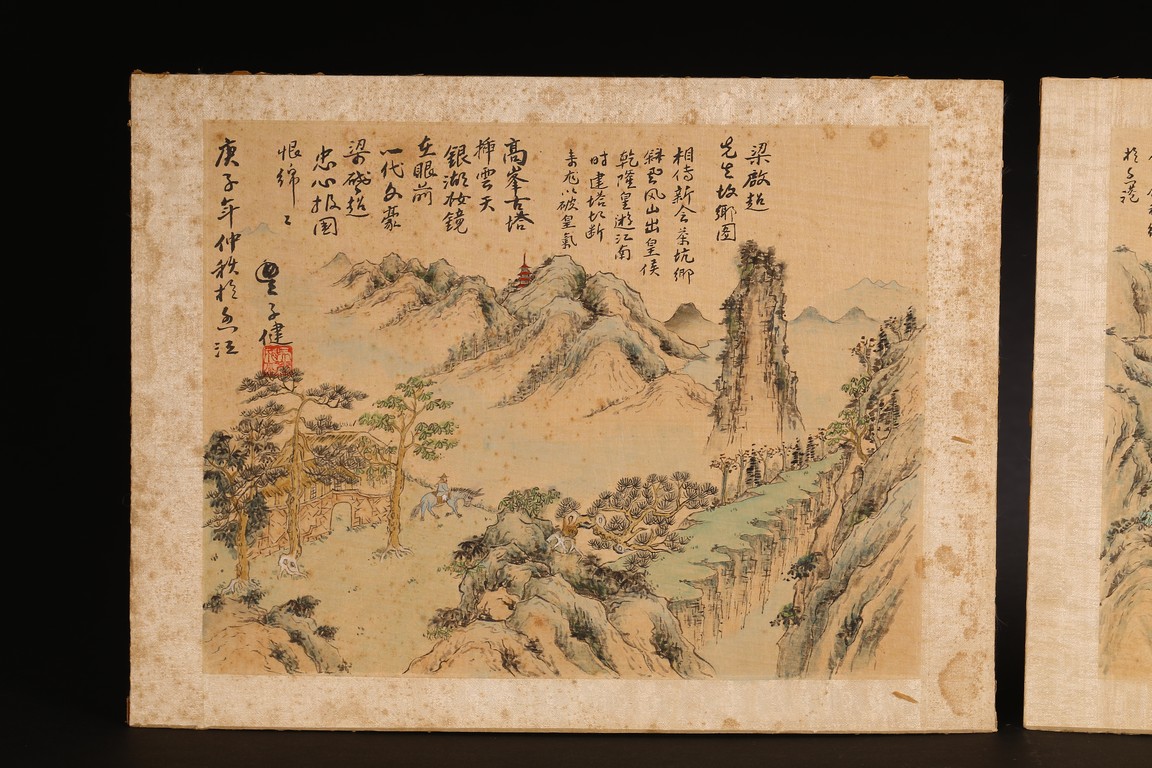 梁啟超
先生故鄉圖
相傳新会茶坑鄉
凤山出皇侯
乾隆皇游江南
时建塔以断
以破皇氣
高峯古塔
插雲天
銀湖妆鏡
在眼前
一代文豪
梁啟超
忠心报国
恨绵〻
子健
庚子年仲秋於香江
於香港